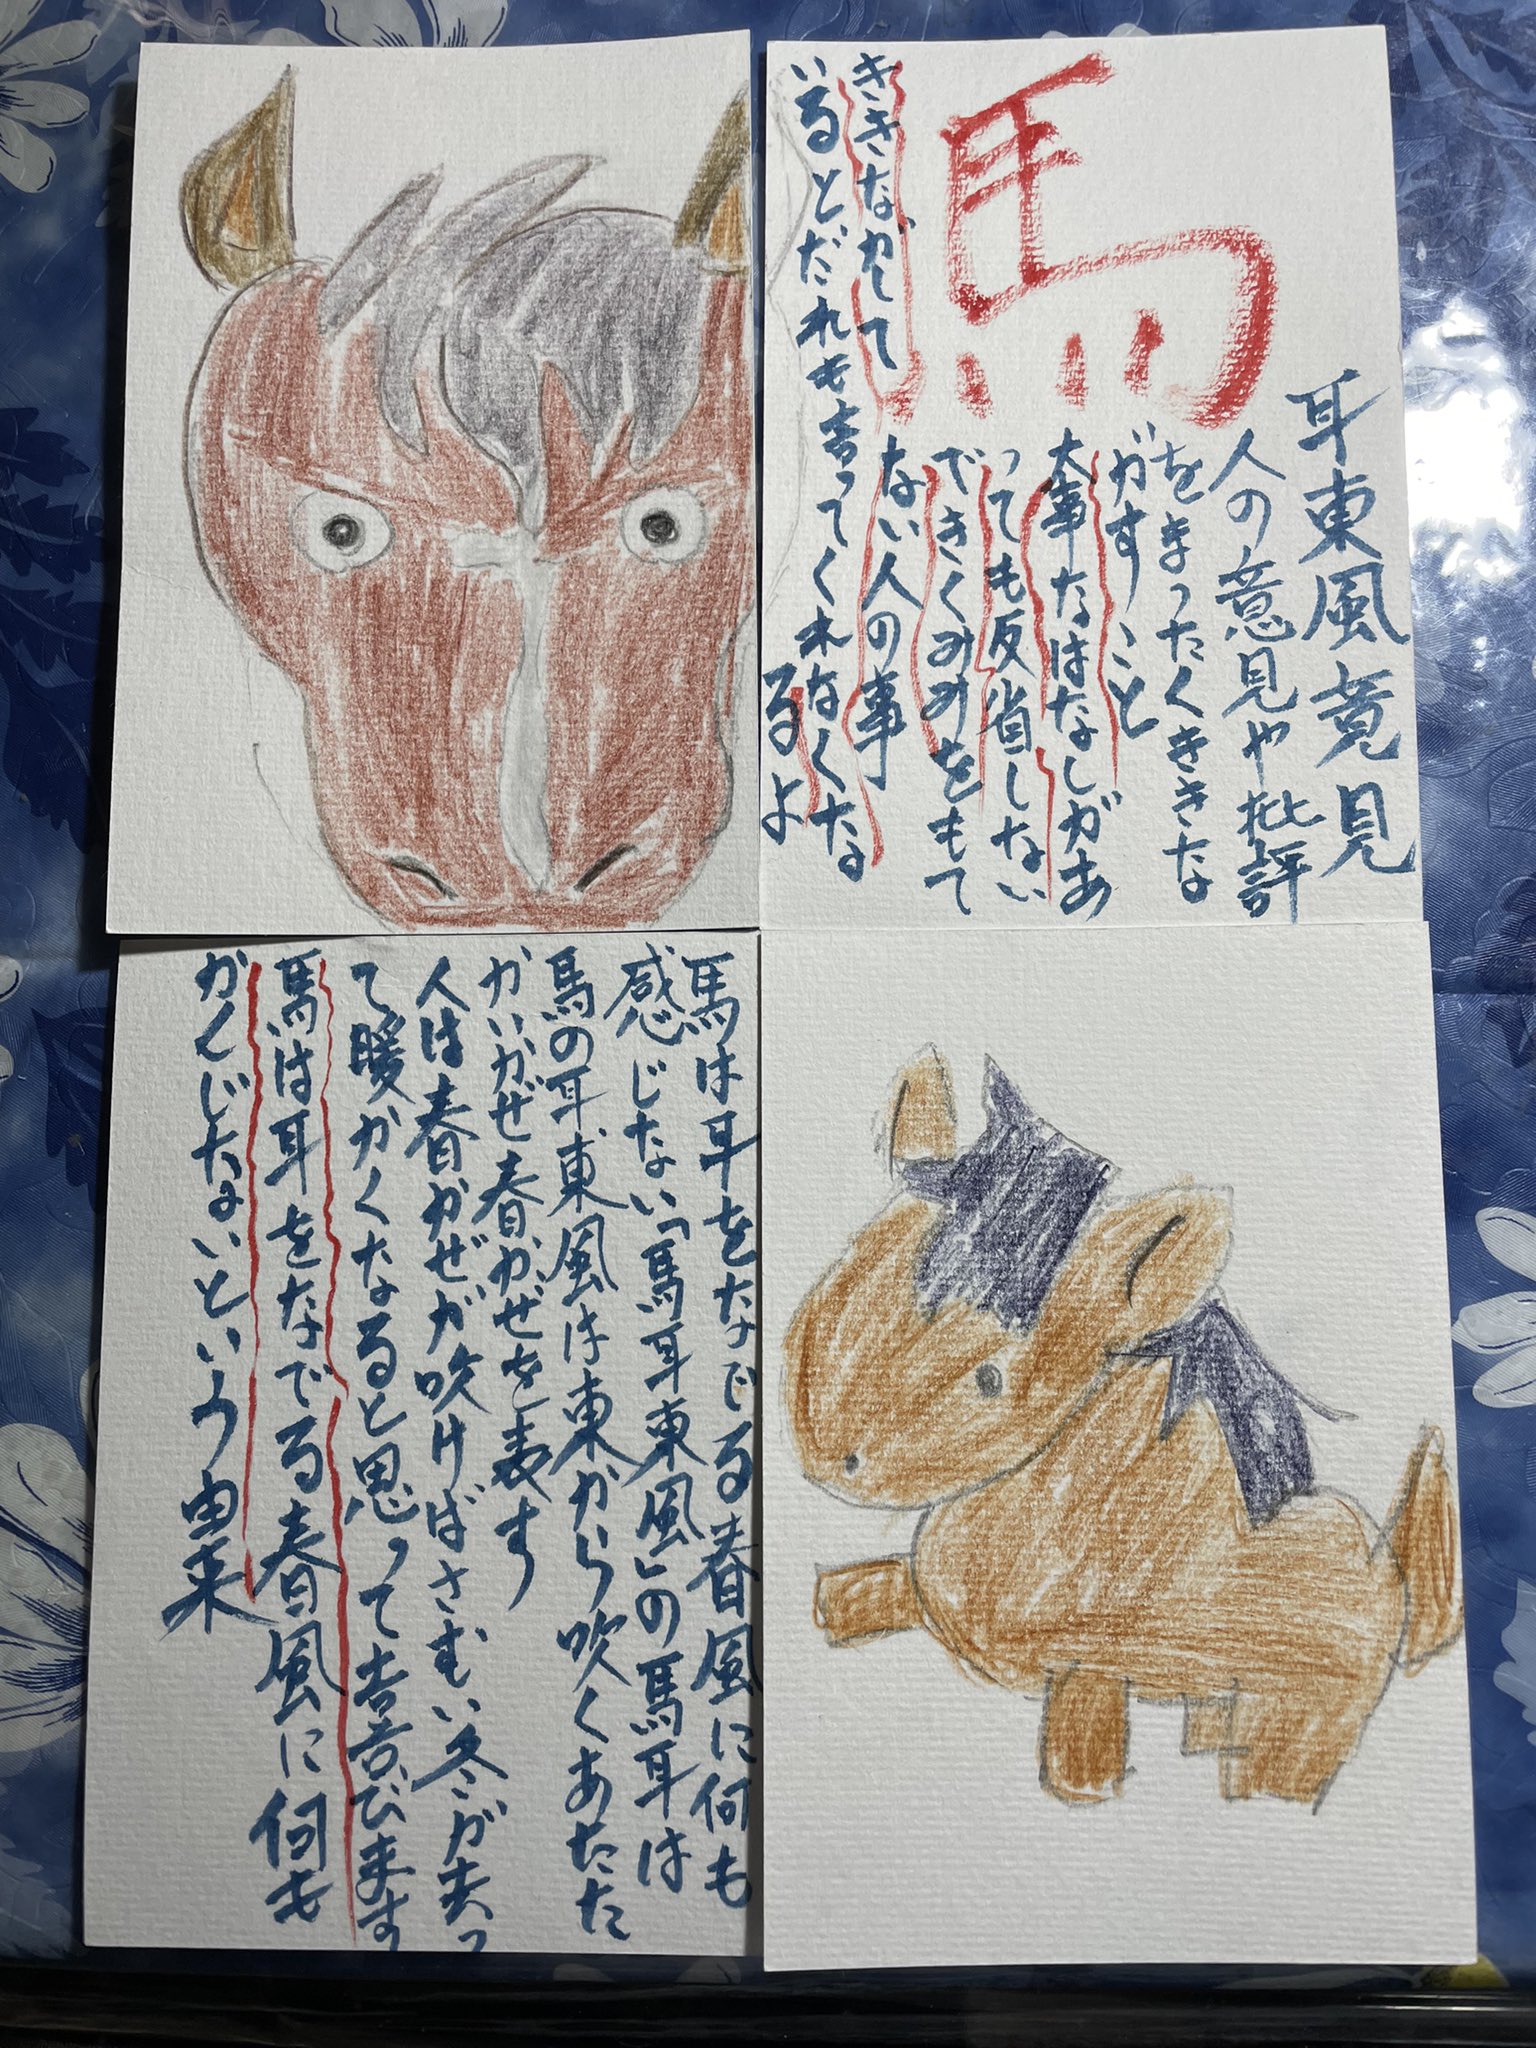 馬
耳東風意見
人の意見や批評
をまったくききな
がすこと
大事なはなしがあ
っても反省しない
できくみみをもて
ない人の事
ききながして
いるとだれも言ってくれなくな
るよ
馬は耳をなでる春風に何も
感じない「馬耳東風」の馬耳は
馬の耳東風は東から吹くあたた
かいかぜ春かぜを表す
人は春かぜが吹けばさむい冬が去っ
て暖かくなると思って喜び来す
馬は耳をなでる春風に何も
かんじないという由来